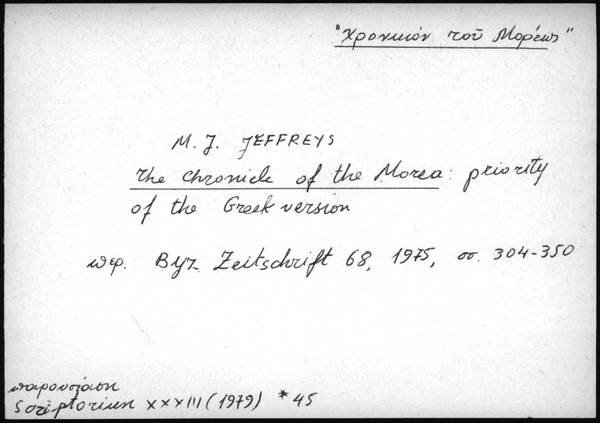 "Χρονικόν τοῦ Μορέως"
M. J. JEFFREYS
The Chronicle of the Morea: priority
of the Greek version
περ. Byz. Zeitschrift 68, 1975, σσ. 304-350
παρουσίαση
Scriptorium XXXIII (1979) * 45